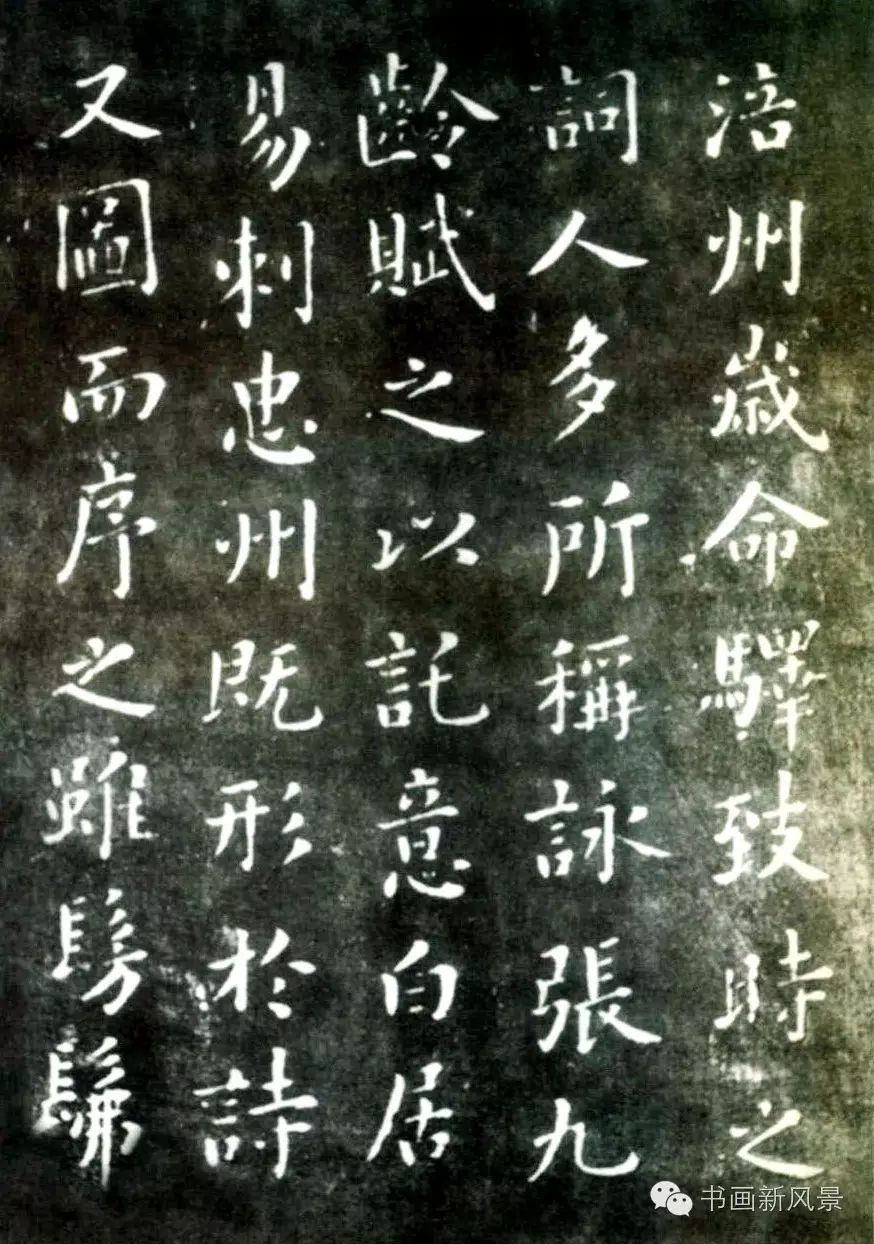 涪州歲命驛致時之
詞人多所稱詠張九
齡賦之以託意白居
易刺忠州既形於詩
又圖而序之雖髣髴
书画新风景